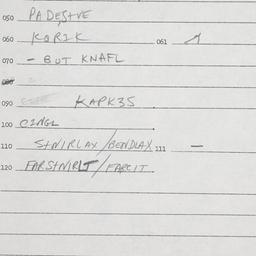 050 PADESTVE
060 KORIK 061
070 - BUT KNAFL
080
090 KAPK35
100 CINGL
110 STNIRLAX/BENDLAX 111 —
120 FARSTNIRLT/FARCIT